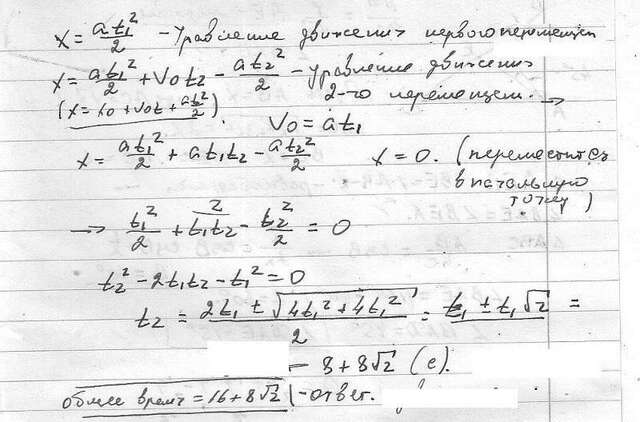 x = at₁²/2 - Уравнение движения первого перемещен
x = at₁²/2 + V₀t₂ - at₂²/2 - уравнение движения
(x = x₀ + v₀t + at²/2). 2-го перемещен. →
V₀ = at₁
x = at₁²/2 + at₁t₂ - at₂²/2 x = 0. (переместится
в начальную
точку)
→ t₁²/2 + 2/t₁t₂ - t₂²/2 = 0
t₂² - 2t₁t₂ - t₁² = 0
t₂ = (2t₁ ± √(4t₁² + 4t₁²))/2 = t₁ ± t₁√2 =
= 8 + 8√2 (с).
общее время = 16 + 8√2 - ответ.